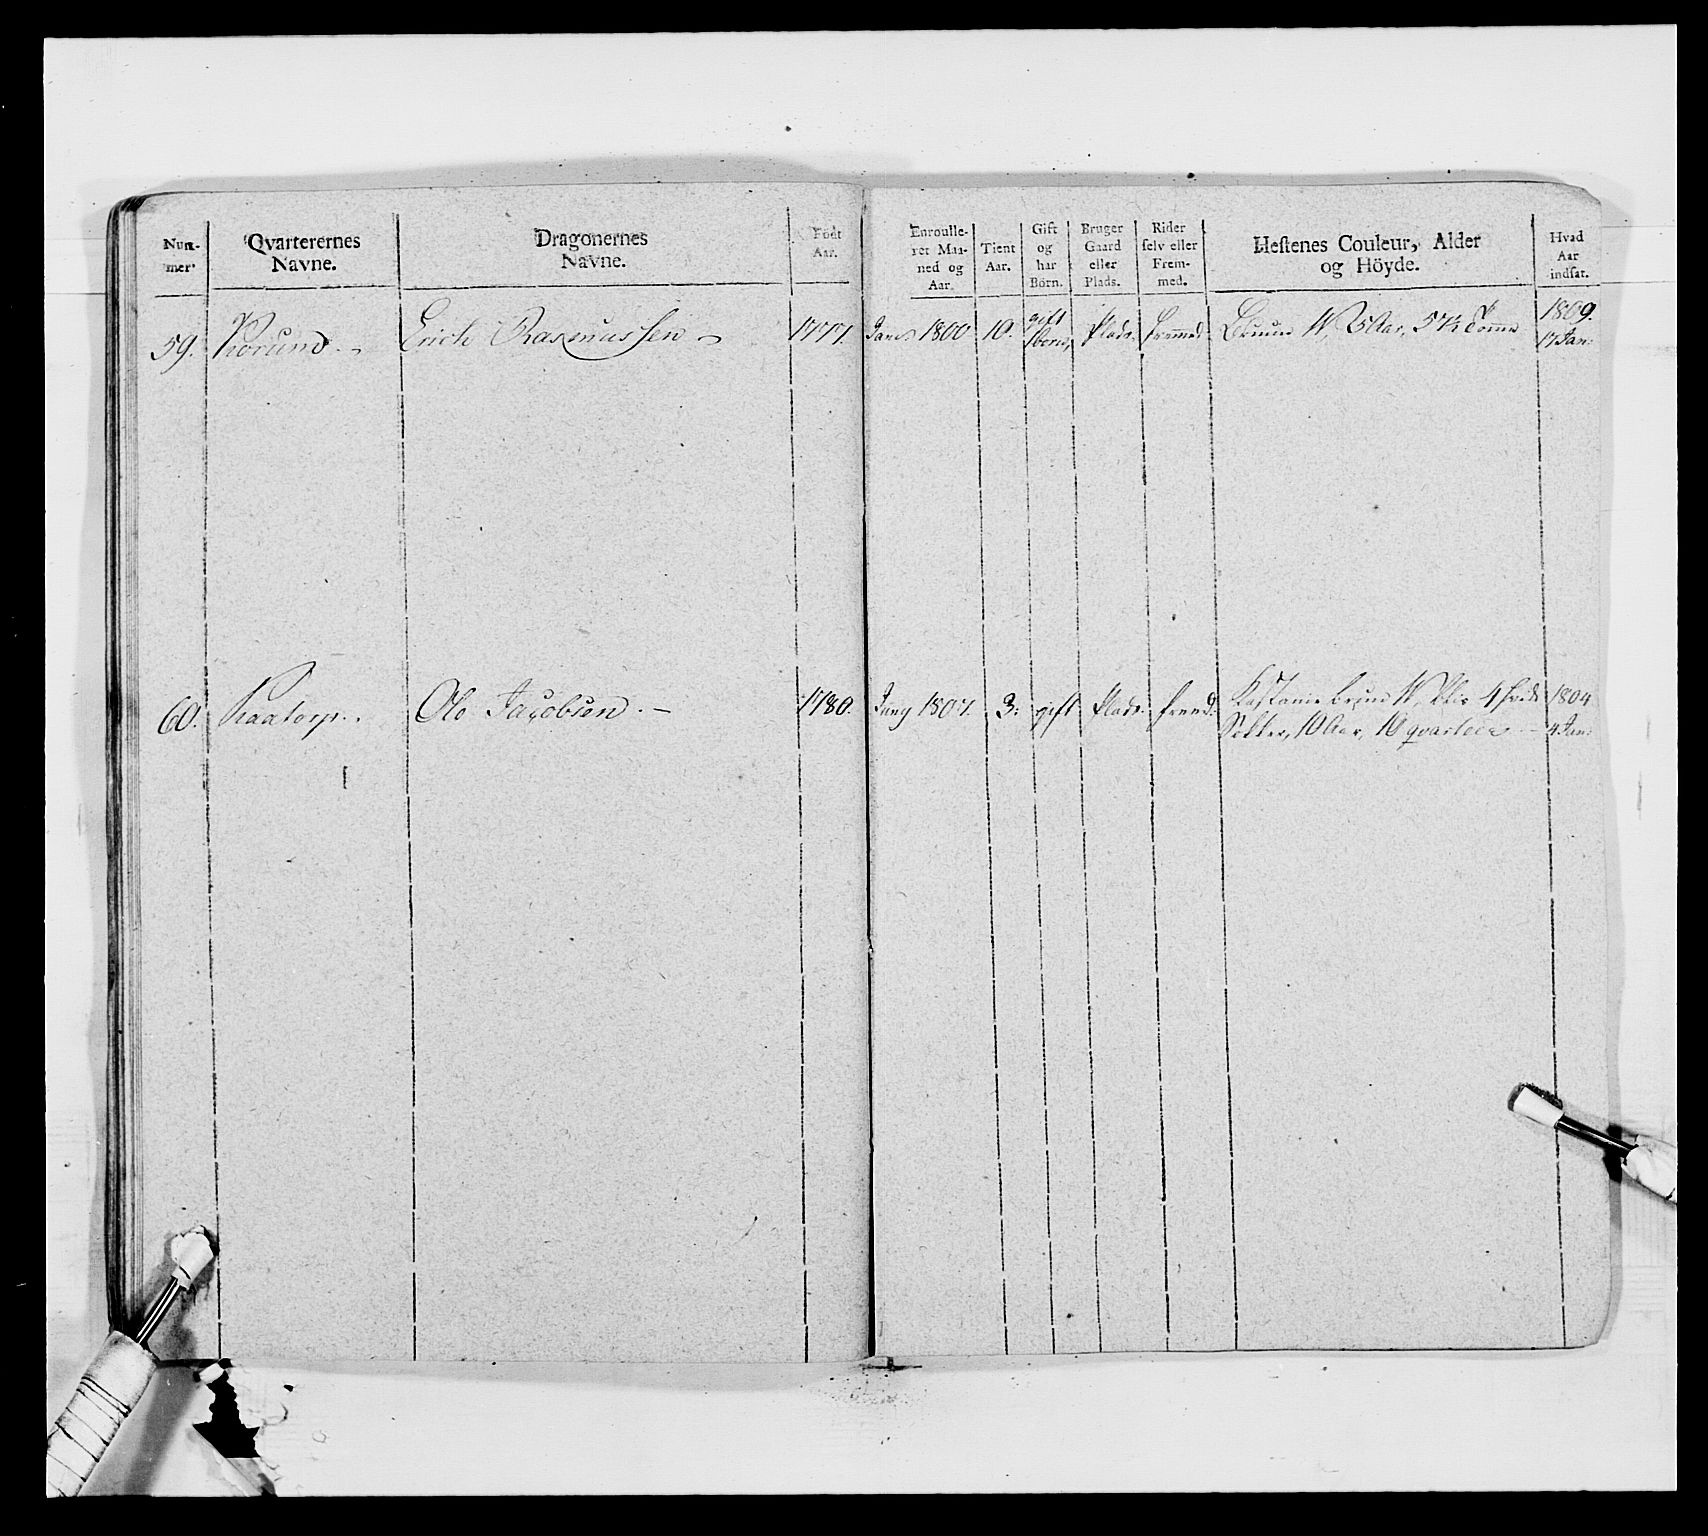 Num-
mer
Qvarterernes
Navne.
Dragonernes
Navne.
Födt
Aar.
Enroulle-
ret Maa-
ned og
Aar.
Tient
Aar.
Gift
og
har
Börn.
Bruger
Gaard
eller
Plads.
Rider
selv eller
Frem-
med.
Hestenes Couleur, Alder
og Höyde.
Hvad
Aar
indsat.
59. Korund. Erich Rasmussen 1777. 1800 10. gift Plads. fremmed. Bruun 5 Aar, 1809.
17 Jan:
60. Kaatorp. Ole Jacobsen. 1780. 1807. 3. gift Plads. Kastanie bruun 4 1804
10 Aar, 10 qvarteer 4 Jan: